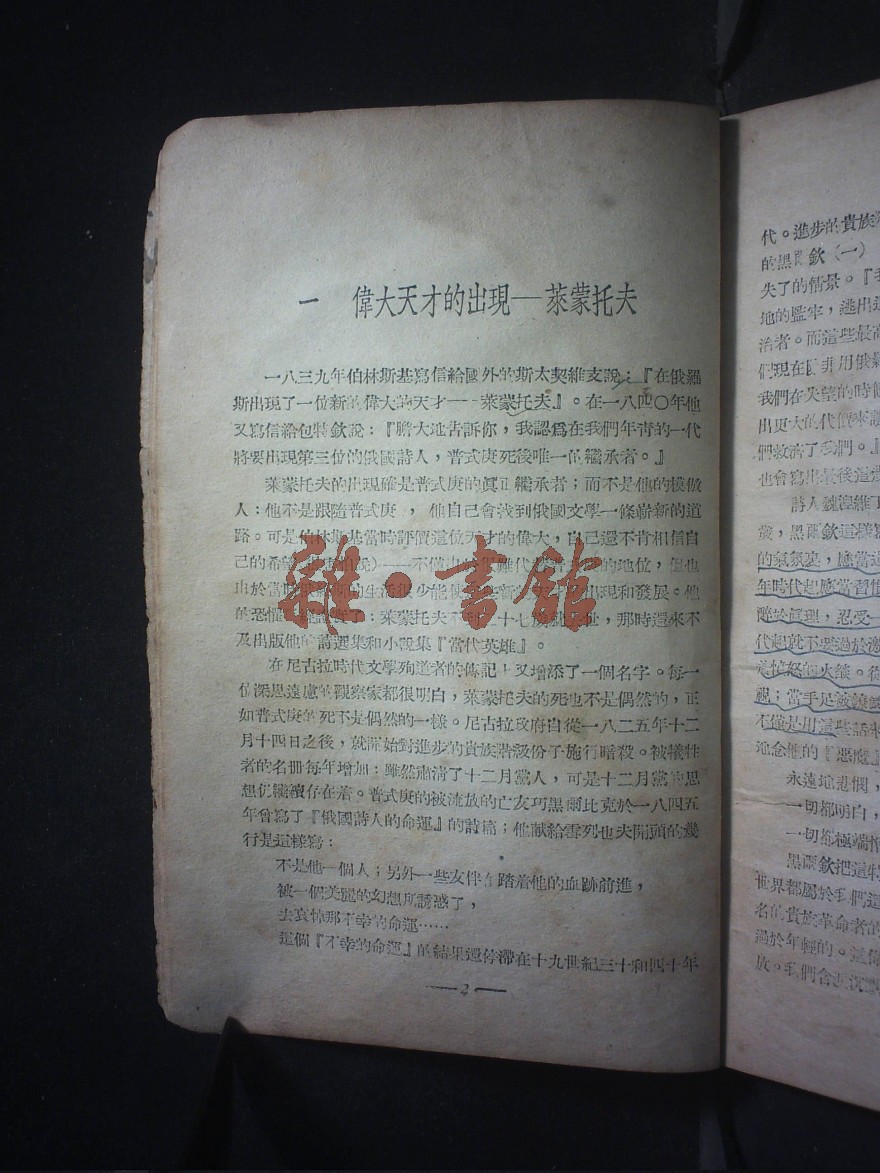 一　偉大天才的出現——萊蒙托夫
一八三九年伯林斯基寫信給國外的斯太契維支說：『在俄羅
斯出現了一位新的偉大的天才——萊蒙托夫』。在一八四〇年他
又寫信給包特欽說：『膽大地告訴你，我認爲在我們年青的一代
將要出現第三位的俄國詩人，普式庚死後唯一的繼承者。』
萊蒙托夫的出現確是普式庚的眞正繼承者；而不是他的模倣
人：他不是跟隨普式庚，他自己會找到俄國文學一條嶄新的道
路。可是伯林斯基當時評價這位天才的偉大，自己還不肯相信自
己的希望
——不僅
代替
的地位，但也
由於當時
的生活很少能
出現和發展。他
的恐懼
萊蒙托夫不到二十七歲就
世，那時還來不
及出版他的詩選集和小說集『當代英雄』。
在尼古拉時代文學殉道者的傳記上又增添了一個名字。每一
位深思遠慮的觀察家都很明白，萊蒙托夫的死也不是偶然的，正
如普式庚的死不是偶然的一樣。尼古拉政府自從一八二五年十二
月十四日之後，就開始對進步的貴族階級份子施行暗殺。被犧牲
者的名冊每年增加：雖然肅清了十二月黨人，可是十二月黨的思
想仍繼續存在着。普式庚的被流放的亡友巧黑爾比克於一八四五
年曾寫了『俄國詩人的命運』的詩篇；他献給雷列也夫開頭的幾
行是這樣寫：
不是他一個人；另外一些女伴在踏着他的血跡前進，
被一個美麗的幻想所誘惑了，
去哀悼那不幸的命運……
這個『不幸的命運』的結果還停滯在十九世紀三十和四十年
—2—
雜·書館
代。進步的貴族
的黑爾欽（一）
失了的情景。『我
地的監牢，逃出這
治者。而這些最高
們現在
非用俄
我們在失望的時候
出更大的代價來
們救濟了我們。』
也會寫出最後這
詩人
黑爾欽這樣寫
的氣氛裏，應當
年時代起應當習慣
隨於眞理，忍受一
代起就不要過於激
憤怒的火燄。從
視；當手足被
不僅是用這些話來
地念誰的『惡魔』
永遠地悲憫，
一切都明白，
一切都極端
黑爾欽把這特
世界都屬於我們這
名的貴族革命者的
過於年輕的。這
放。我們含
沉默